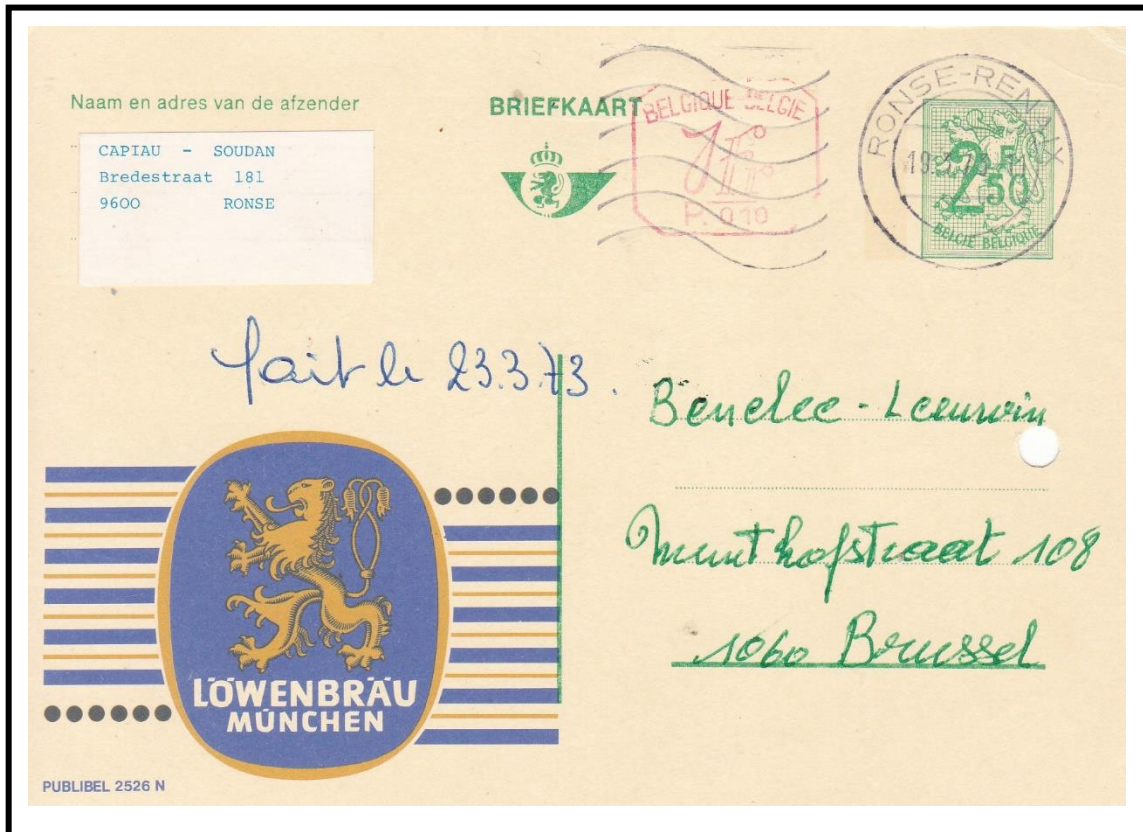 Naam en adres van de afzender
CAPIAU - SOUDAN
Bredestraat 181
9600 RONSE
BRIEFKAART
BELGIQUE-BELGIE
1Fr
P. 010
RONSE-RENAIX
2,50
BELGIË BELGIQUE
fait le 23.3.73.
Benelec-Leeuwin
Munthofstraat 108
1060 Brussel
LÖWENBRÄU
MÜNCHEN
PUBLIBEL 2526 N